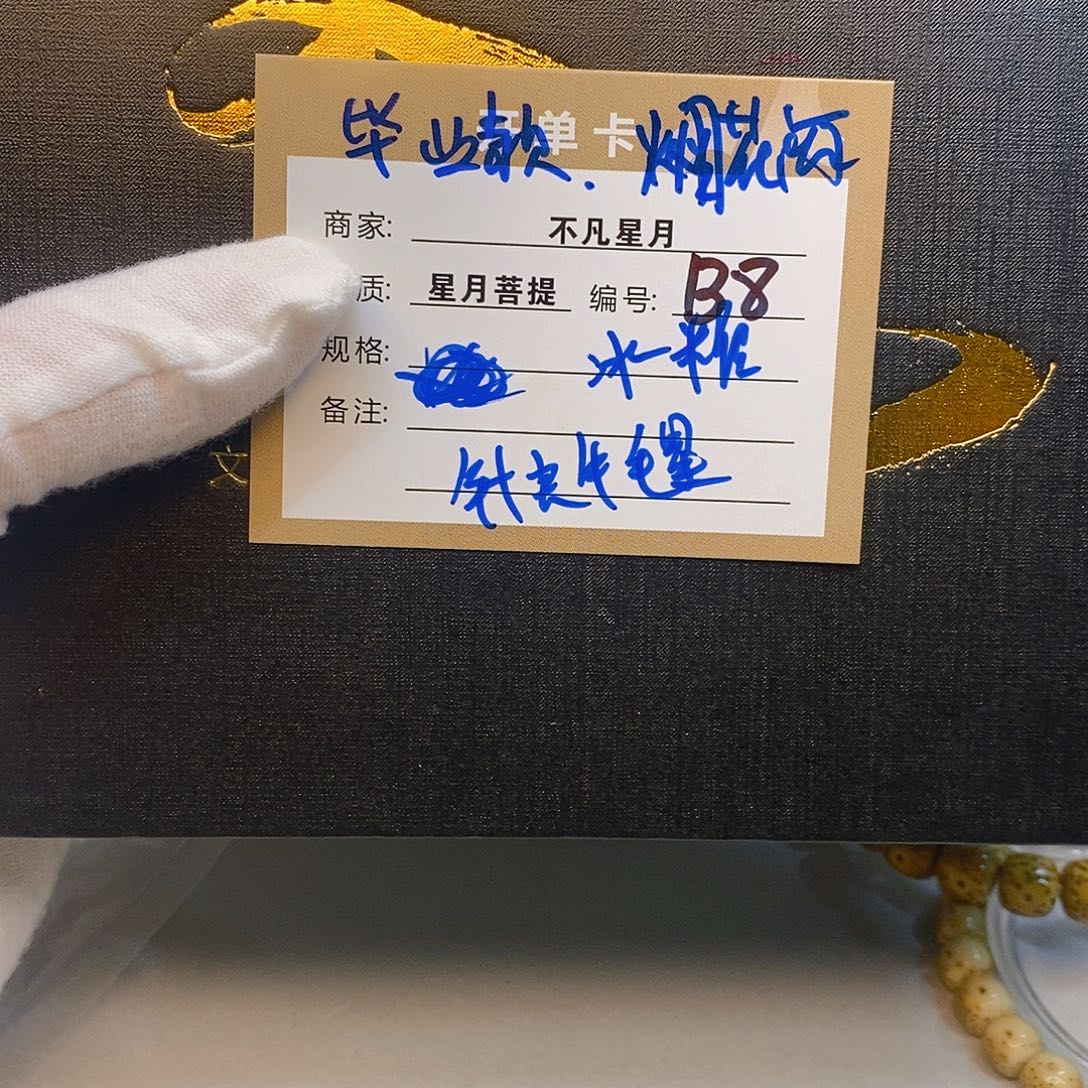 毕业款. 烟花
单卡
商家: 不凡星月
质: 星月菩提 编号: B8
规格: 冰糖
备注:
针 牛毛星
文